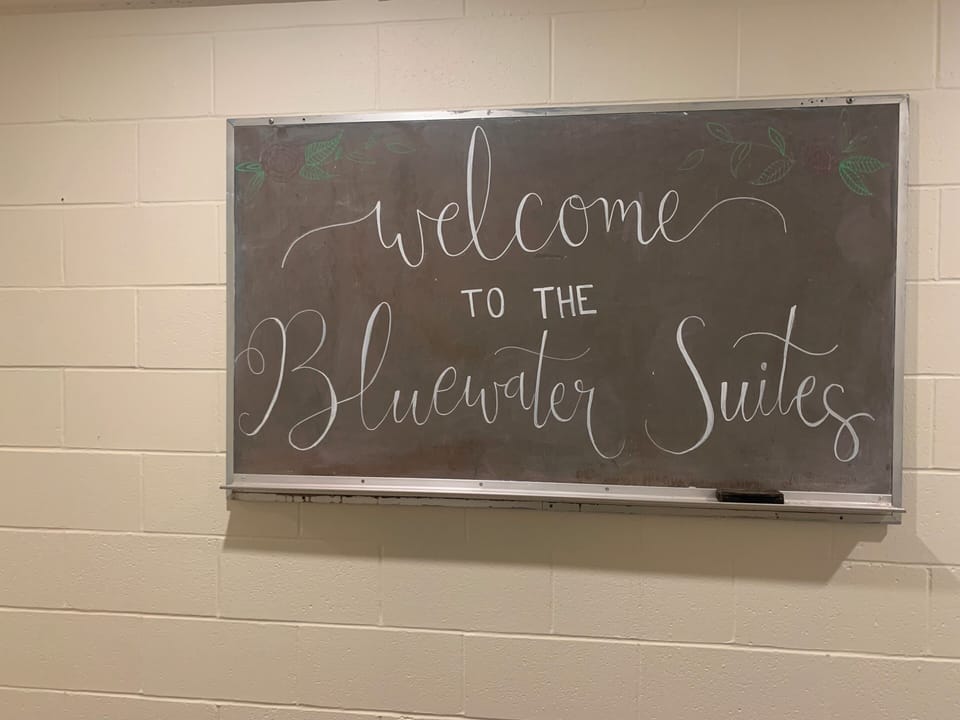 welcome
TO THE
Bluewater Suites